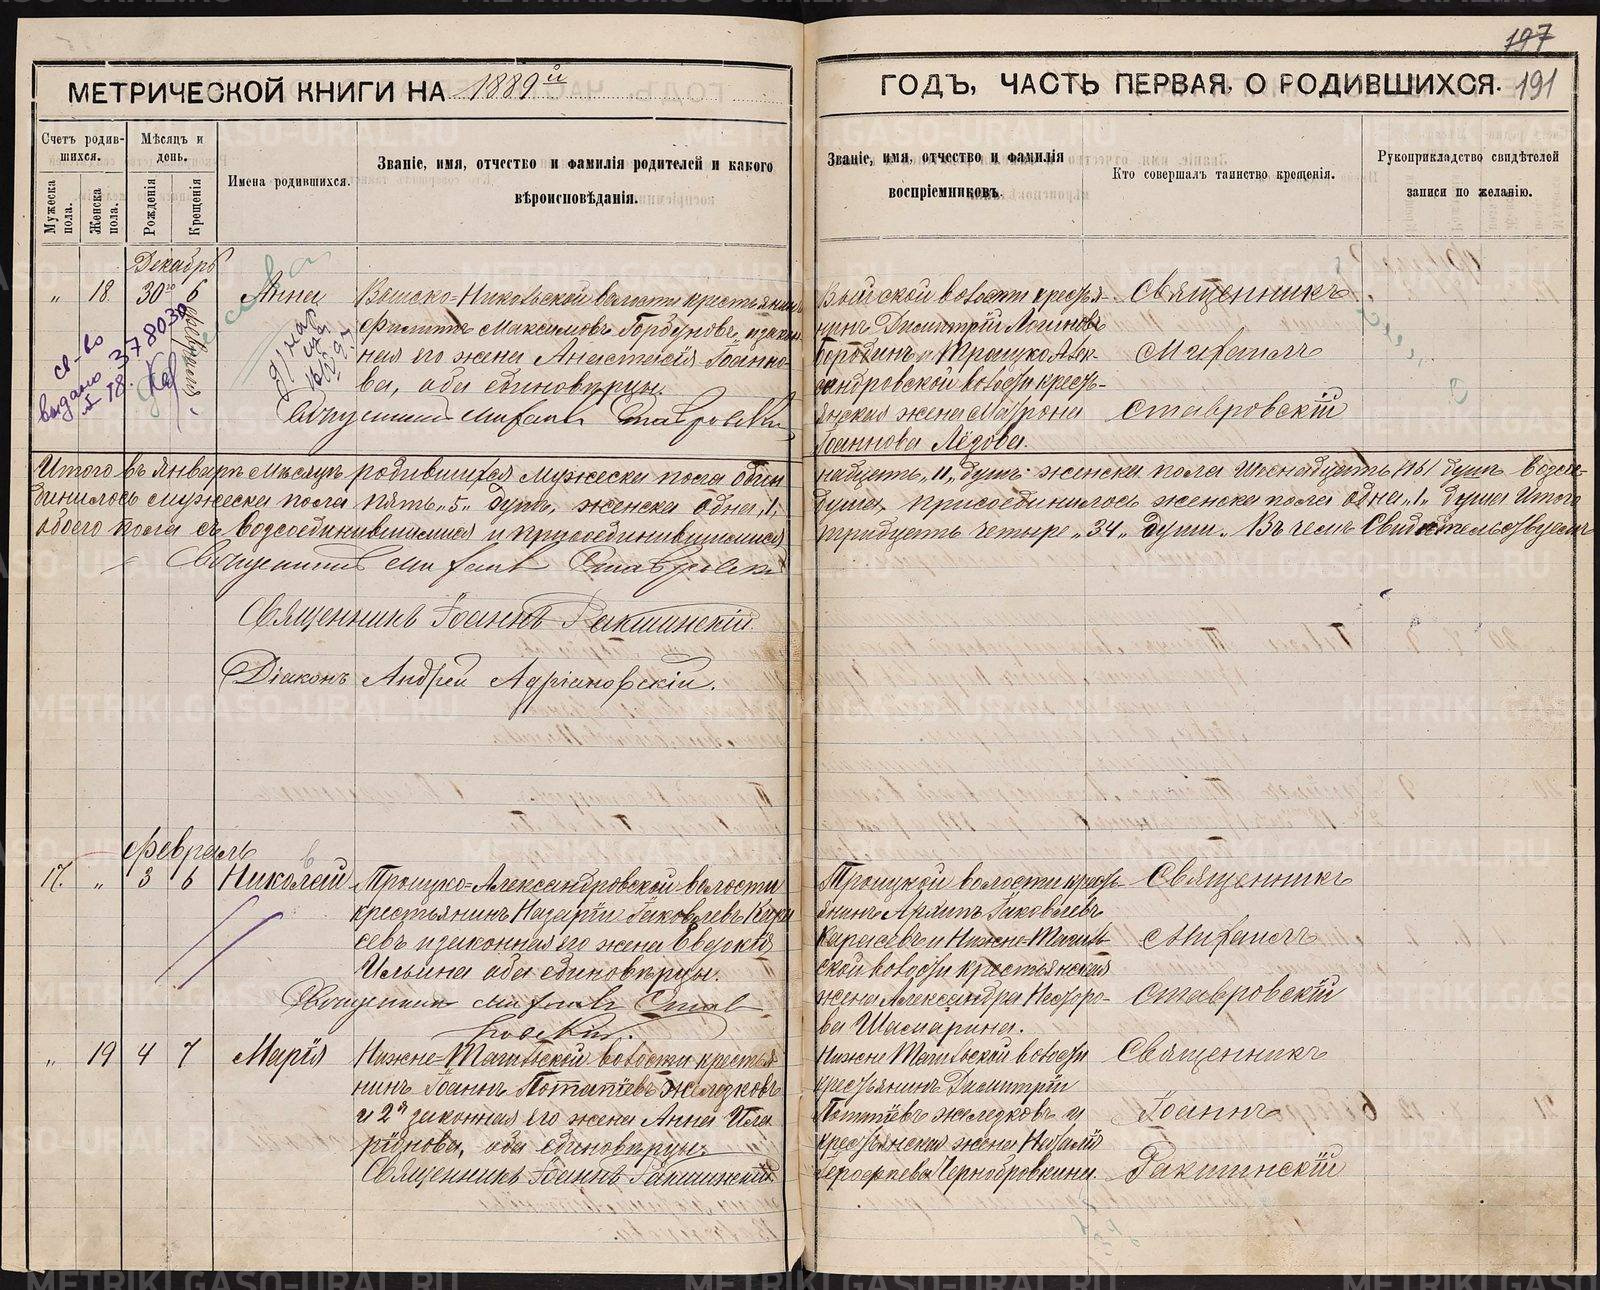 197
МЕТРИЧЕСКОЙ КНИГИ НА 1889й
ГОДЪ, ЧАСТЬ ПЕРВАЯ, О РОДИВШИХСЯ. 191
Счетъ родив-
шихся.
Мужеска пола.
Женска пола.
Мѣсяцъ и
день.
Рожденія
Крещенія
Имена родившихся.
Званіе, имя, отчество и фамилія родителей и какого
вѣроисповѣданія.
Званіе, имя, отчество и фамилія
воспріемниковъ.
Кто совершалъ таинство крещенія.
Рукоприкладство свидѣтелей
записи по желанію.
Декабрь
" 18. 30го 6 Анна
Февраля
св-во
выдано
378030
Выйско-Никольской волости крестьянинъ
Филиппъ Максимовъ Горбуновъ и закон-
ная его жена Анастасія Іоанно-
ва, оба единовѣрцы.
Священникъ Михаилъ Ставровскій
Выйской волости крестья-
нинъ Димитрій Логиновъ
Бородинъ и Троицко Алек-
сандровской волости кресть-
янская жена Матрона
Іоаннова Лёдова.
Священникъ
Михаилъ
Ставровскій
Итого въ Январѣ мѣсяцѣ родившихся мужеска пола один
динилось мужеска пола пять "5" душъ, женска одна "1"
обоего пола съ возсоединившимися и присоединившимися
надцать "11" душъ женска пола шестнадцать /16/ душъ возсое-
душа, присоединилось женска пола одна "1" душа Итого
тридцать четыре "34" души. Въ чемъ Свидѣтельствуемъ
Священникъ Михаилъ Ставровскій
Священникъ Іоаннъ Ракшинскій.
Діаконъ Андрей Адріановскій.
Февраль
17. " 3 6 Николай
Троицко-Александровской волости
крестьянинъ Назарій Іаковлевъ Кара
севъ и законная его жена Евдокія
Ильина оба единовѣрцы.
Священникъ Михаилъ Став
ровскій.
Троицкой волости кресть-
янинъ Архипъ Іаковлевъ
Карасевъ и Нижне-Тагиль-
ской волости крестьянская
жена Александра Несторо-
ва Шамарина.
Священникъ
Михаилъ
Ставровскій
" 19 4 7 Марія
Нижне-Тагильской волости крестья-
нинъ Іоаннъ Потапіевъ Желѣзковъ
и 2я законная его жена Анна Ила
ріонова, оба единовѣрцы.
Священникъ Іоаннъ Ракшинскій.
Нижне Тагильской волости
крестьянинъ Димитрій
Потапіевъ Желѣзковъ и
крестьянская жена Наталія
Чернобровкина.
Священникъ
Іоаннъ
Ракшинскій
METRIKI.GASO-URAL.RU